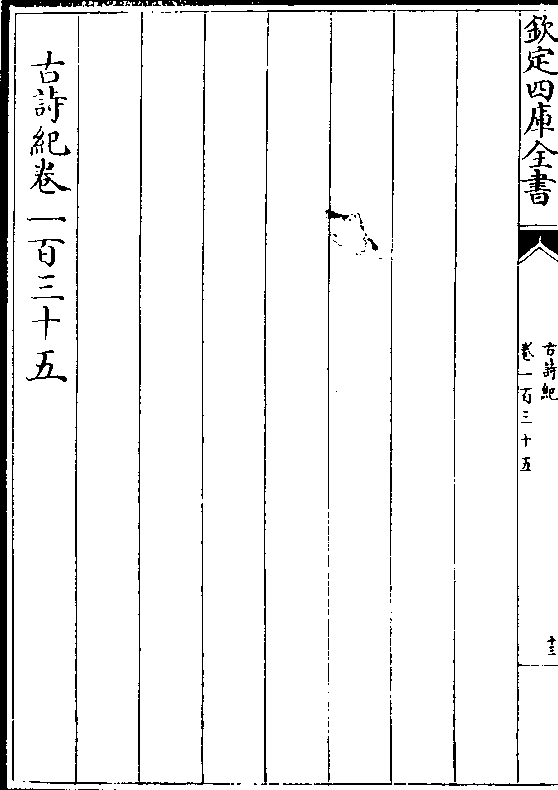 欽定四庫全書
古詩紀
卷一百三十五
十三
古詩紀卷一百三十五